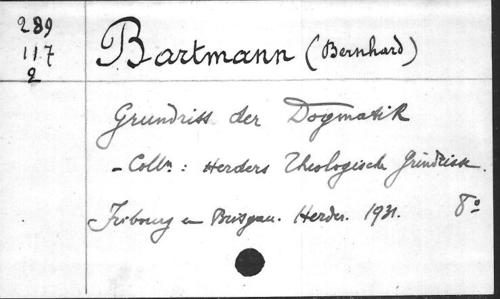 289
117
2
Bartmann (Bernhard)
Grundriss der Dogmatik
- Collon : Herders Theologische Grundrisse.
Fribourg en Brisgau. Herder. 1931. 8°